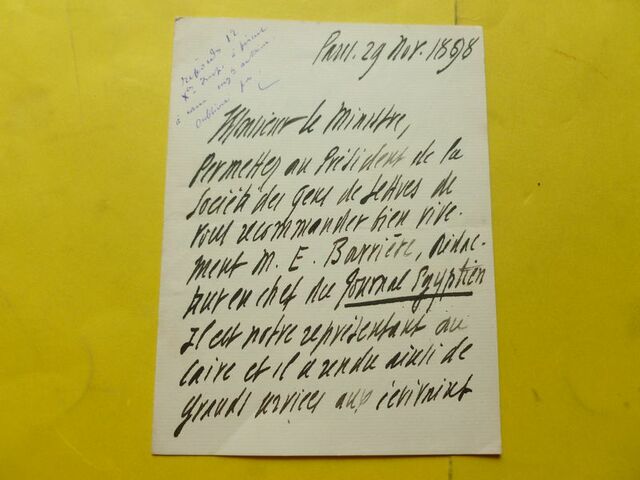 répondu 12
à
Paris. 29 Nov. 1898
Monsieur le Ministre,
Permettez au Président de la
Société des gens de lettres de
vous recommander bien vive-
ment M. E. Barrière, rédac-
teur en chef du Journal Egyptien
Il est notre représentant au
Caire et il a rendu ainsi de
grands services aux écrivains